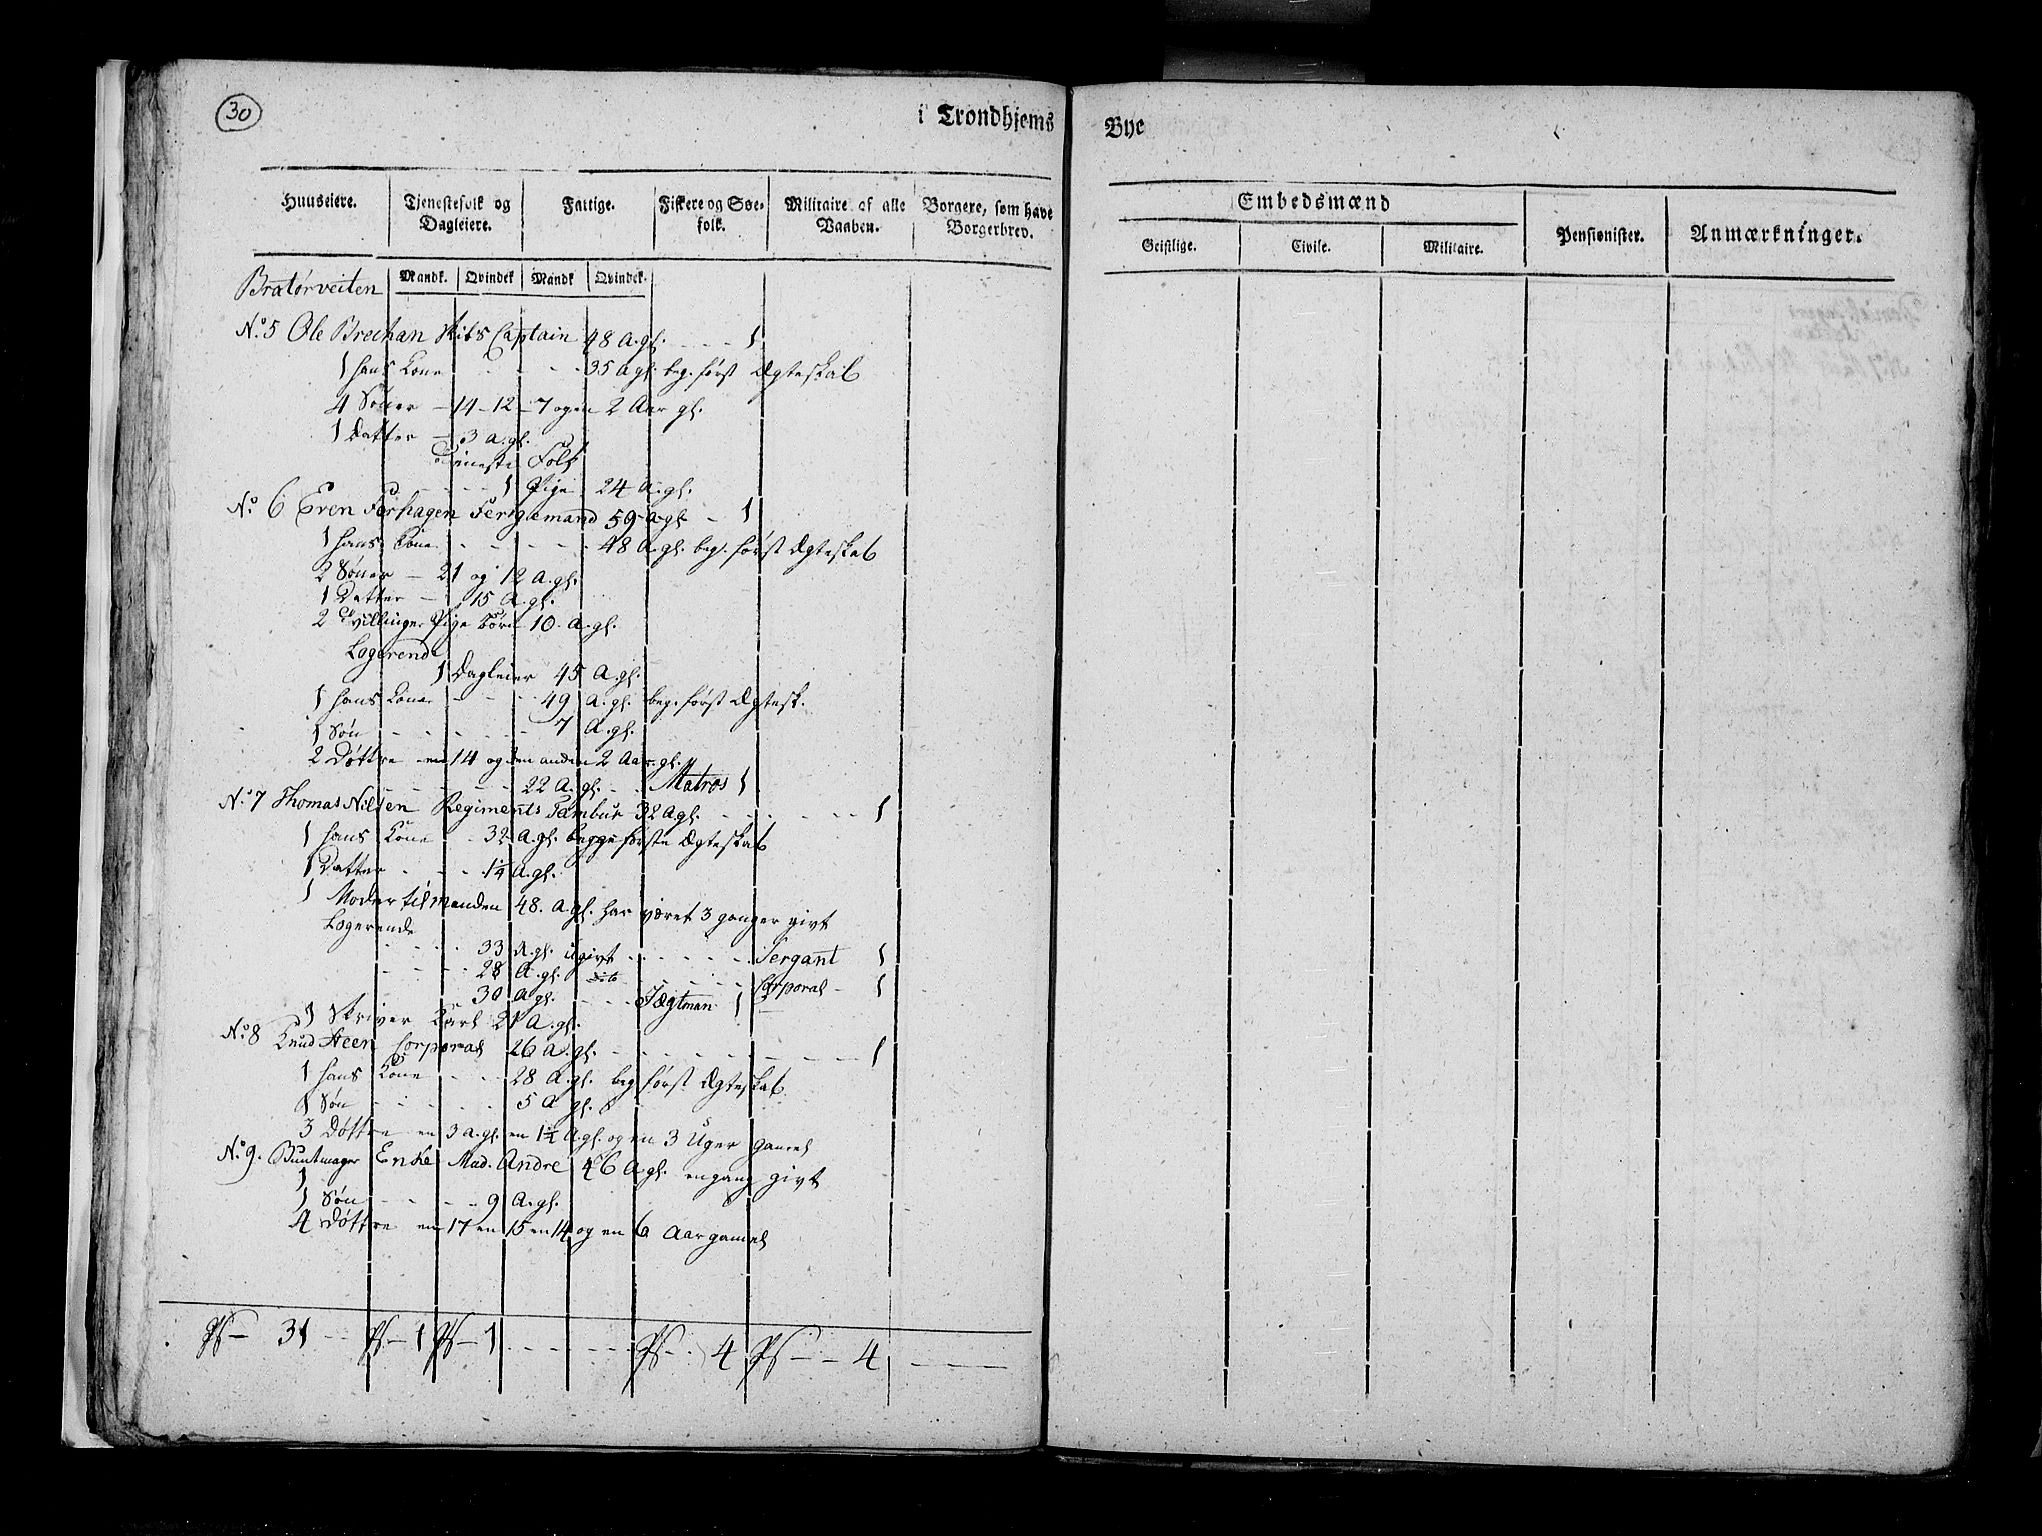 30
i Trondhjems Bye
Huuseiere. Tjenestefolk og Dagleiere. Fattige. Fiskere og Søe-folk. Militaire af alle Vaaben. Borgere, som have Borgerbrev. Embedsmænd Pensionister. Anmærkninger.
Geistlige. Civile. Militaire.
Mandk. Qvindek Mandk Qvindek.
Bratørveiten
No. 5 Ole Brechan Skibs Captain 48 A. gl. - - - - 1
1 hans Kone - - - - 35 A gl. beg. først Ægteskab
4 Sønner - 14 - 12 - 7 og en 2 Aar gl.
1 Datter - 3 A. gl.
Tieneste Folk
- - - - 1 Pige 24 A. gl.
No. 6 Eren Forhagen Fergemand 59 A gl - 1
1 hans Kone - - - - 48 A. gl. beg. først Ægteskab
2 Sønner - 21 og 12 A. gl.
1 Datter - 15 A. gl.
2 Tvillinger Pige Børn 10 A. gl.
Logerende
1 Dagleier 45 A. gl.
1 hans Kone - - - 49 A. gl. beg. først Ægtesk.
1 Søn - - - - - 7 A. gl.
2 Døttre en 14 og den anden 2 Aar gl.
- - - - - 22 A. gl. - - Matros 1
No. 7 Thomas Nilsen Regiments Tambur 32 A gl. - - - - - - 1
1 hans Kone - - 32 A. gl. begge første Ægteskab
1 Datter - - - - 1¼ A. gl.
1 Moder til Manden 48. A. gl. har været 3 ganger givt
Logerende
- - - - 33 A. gl. ugivt - - - - - - Sergant 1
- - - - 28 A. gl. dito - - - - - Corporal - 1
- - 30 A gl. - - - Jægtman 1
1 Skriver Karl 21 A. gl.
No. 8 Knud Steen Corporal 26 A. gl. - - - - - - - - - 1
1 hans Kone - - 28 A. gl. beg først Ægteskab
1 Søn - - - - - 5 A gl.
3 Døttre en 3 A. gl. en 1½ A gl. og en 3 Uger gamel
No. 9. Buntmager Enke Mad. Andre 46 A gl. engang givt
1
1 Søn - - - - 9 A. gl.
4 Døttre en 17 en 15 en 14 og en 6 Aar gamel
Ps - 31 - - Ps - 1 Ps - 1 - - - - - - Ps - 4 Ps - - 4 - - - -